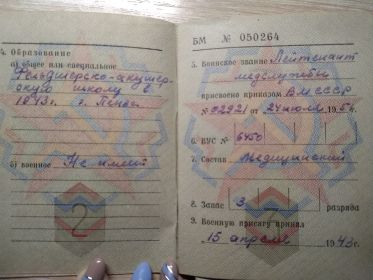 4. Образование
а) общее или специальное
Фельдшерско-акушер-
скую школу в
1943 г. г. Пенза
б) военное Не имеет
2
БМ № 050264
5. Воинское звание Лейтенант
медслужбы
присвоено приказом ВМ СССР
№ 02921 от 24 июля 195 г.
6. ВУС № 6450
7. Состав Медицинский
8. Запас 3 разряда
9. Военную присягу принял
15 апреля 1943 г.
3